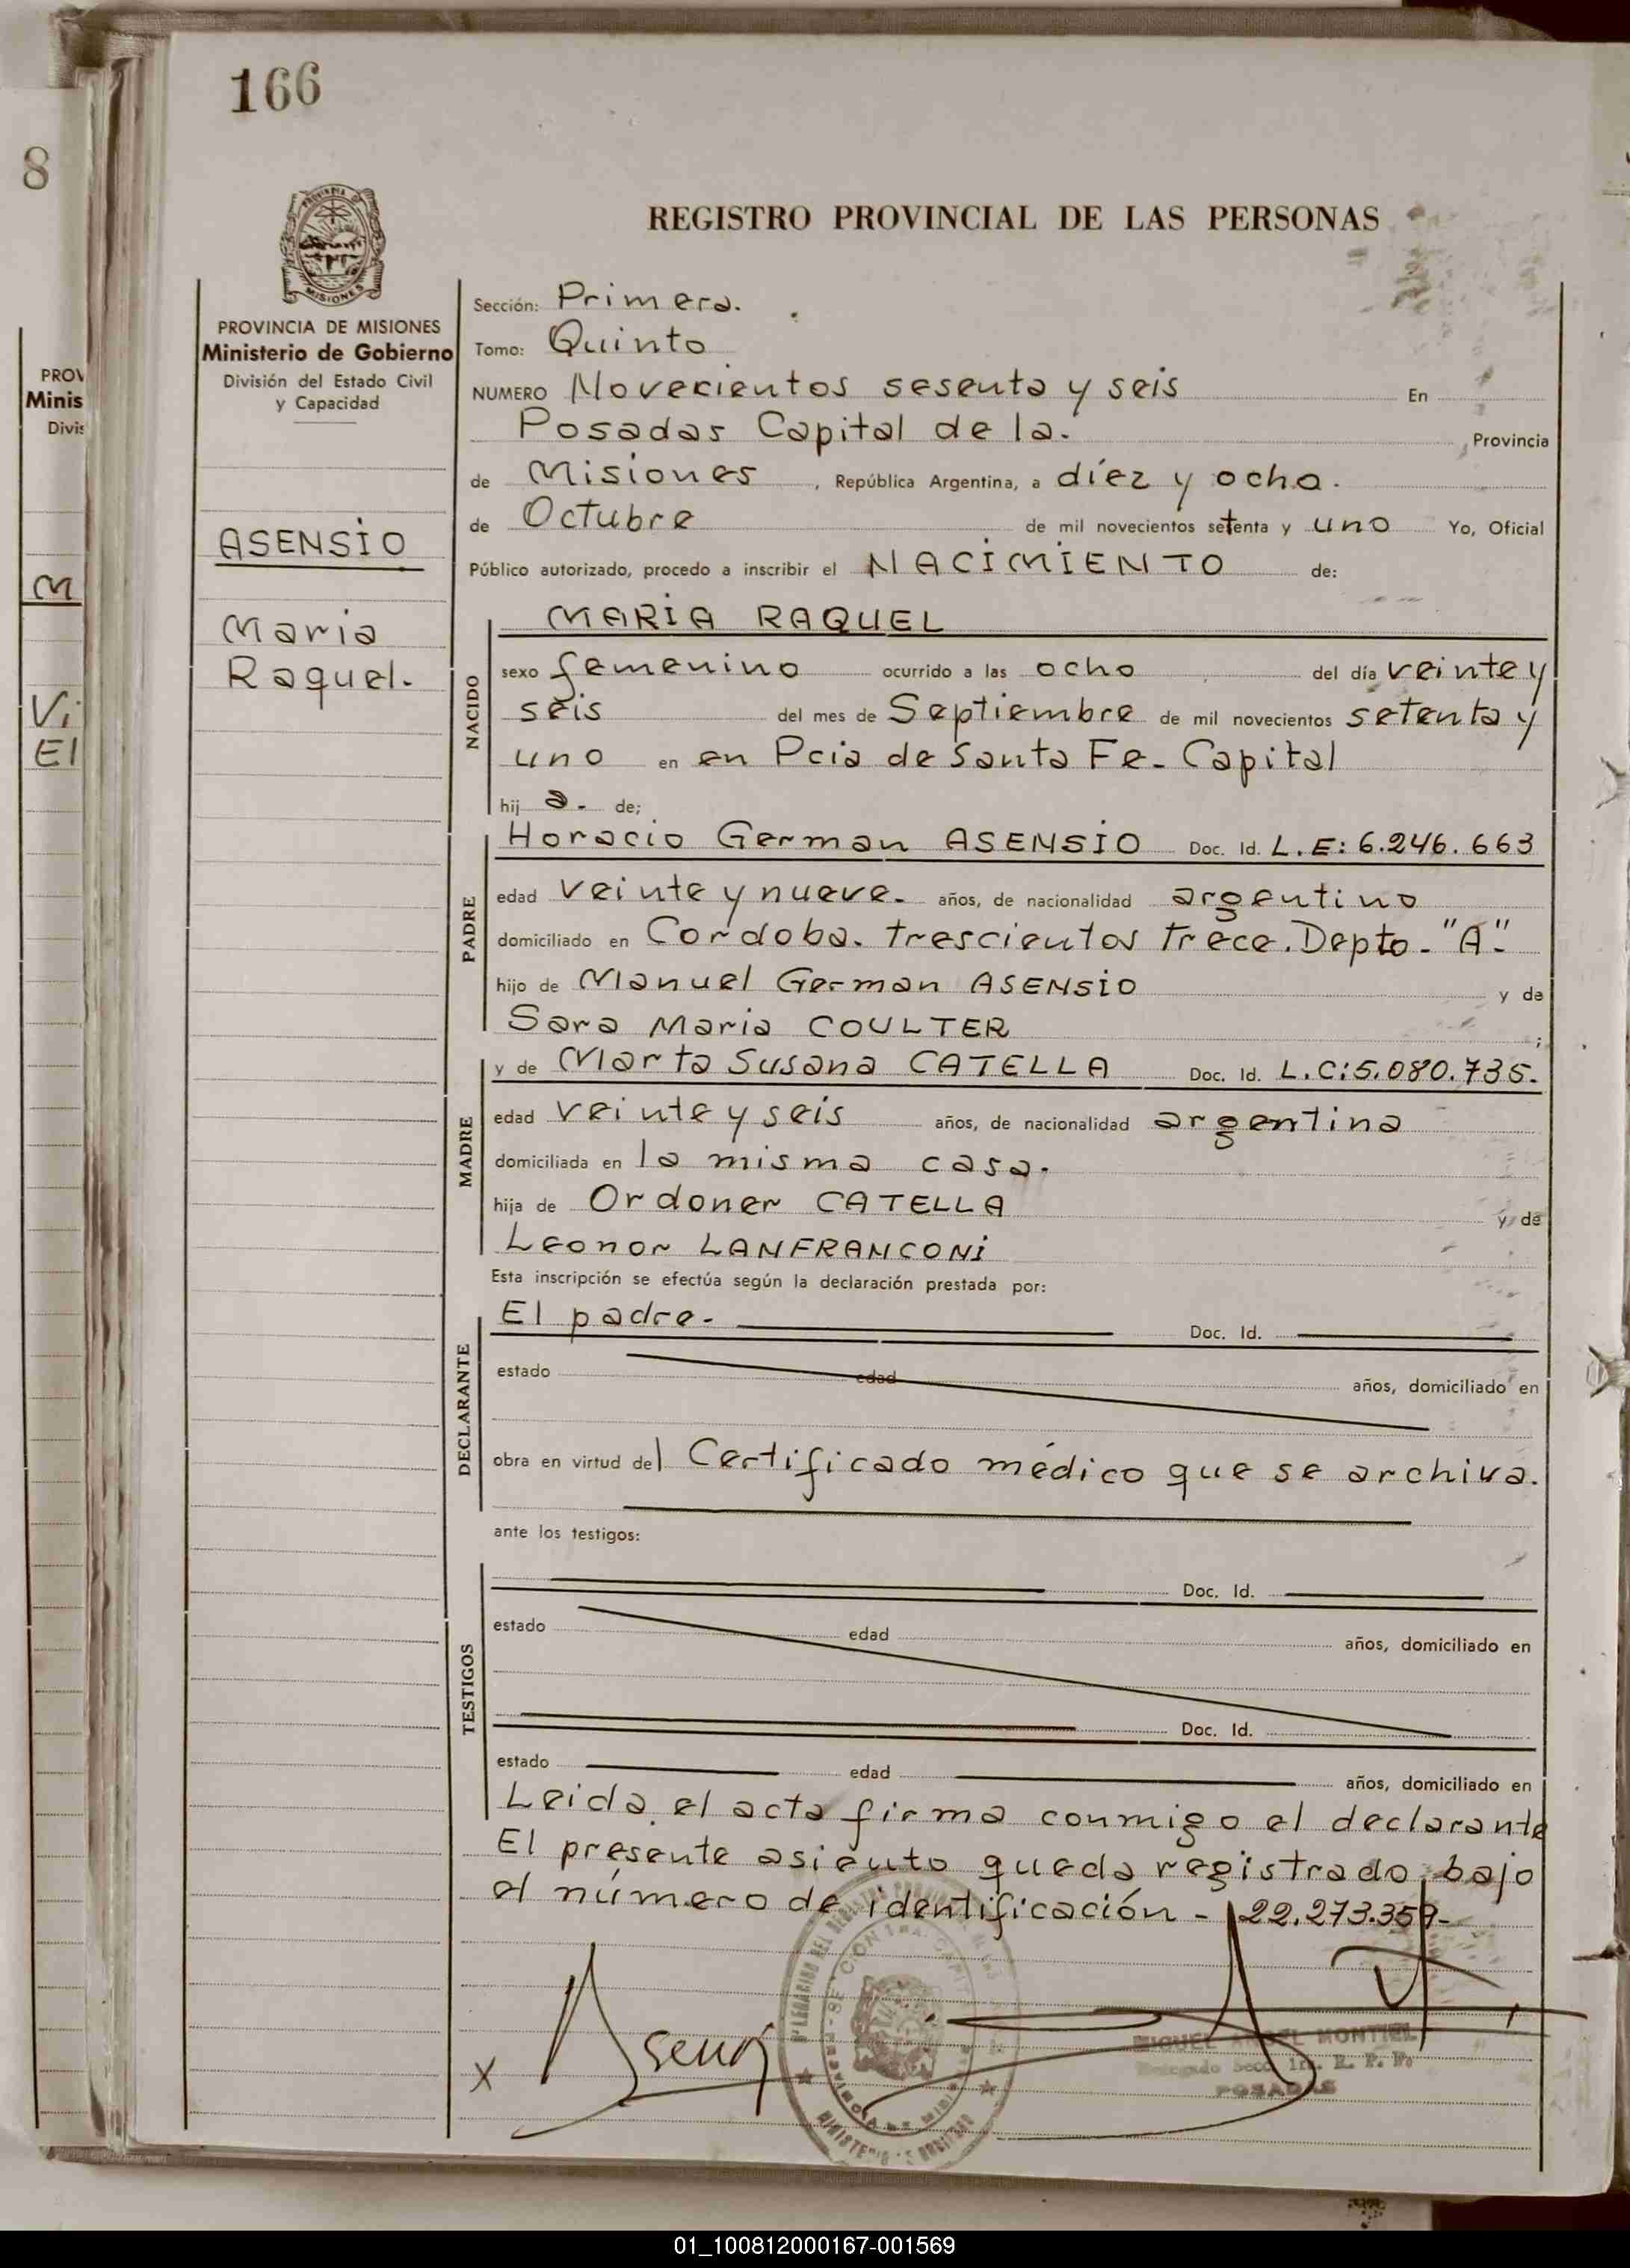 166
8
REGISTRO PROVINCIAL DE LAS PERSONAS
PROVINCIA DE MISIONES
Ministerio de Gobierno
División del Estado Civil
y Capacidad
ASENSIO
Maria
Raquel.
Sección: Primera.
Tomo: Quinto
NUMERO Novecientos sesenta y seis En
Posadas Capital de la. , Provincia
de Misiones , República Argentina, a diez y ocho.
de Octubre de mil novecientos setenta y uno Yo, Oficial
Público autorizado, procedo a inscribir el NACIMIENTO de:
NACIDO
MARIA RAQUEL
sexo femenino ocurrido a las ocho del día veinte y
seis del mes de Septiembre de mil novecientos setenta y
uno en en Pcia de Santa Fe - Capital
hij a. de;
PADRE
Horacio German ASENSIO Doc. Id. L.E: 6.246.663
edad veinte y nueve. años, de nacionalidad argentino
domiciliado en Cordoba. trescientos trece. Depto - "A".
hijo de Manuel German ASENSIO y de
Sara Maria COULTER ;
MADRE
y de Marta Susana CATELLA Doc. Id. L.C: 5.080.735.
edad veinte y seis años, de nacionalidad argentina
domiciliada en la misma casa.
hija de Ordoner CATELLA y de
Leonor LANFRANCONI
Esta inscripción se efectúa según la declaración prestada por:
DECLARANTE
El padre. Doc. Id.
estado edad años, domiciliado en
obra en virtud del Certificado médico que se archiva.
ante los testigos:
TESTIGOS
Doc. Id.
estado edad años, domiciliado en
Doc. Id.
estado edad años, domiciliado en
Leida el acta firma conmigo el declarante
El presente asiento queda registrado bajo
el número de identificación - 22.273.359-
X Asensio
MIGUEL ANGEL MONTIEL
POSADAS
PROV
Minis
Divis
M
Vi
El
01_100812000167-001569